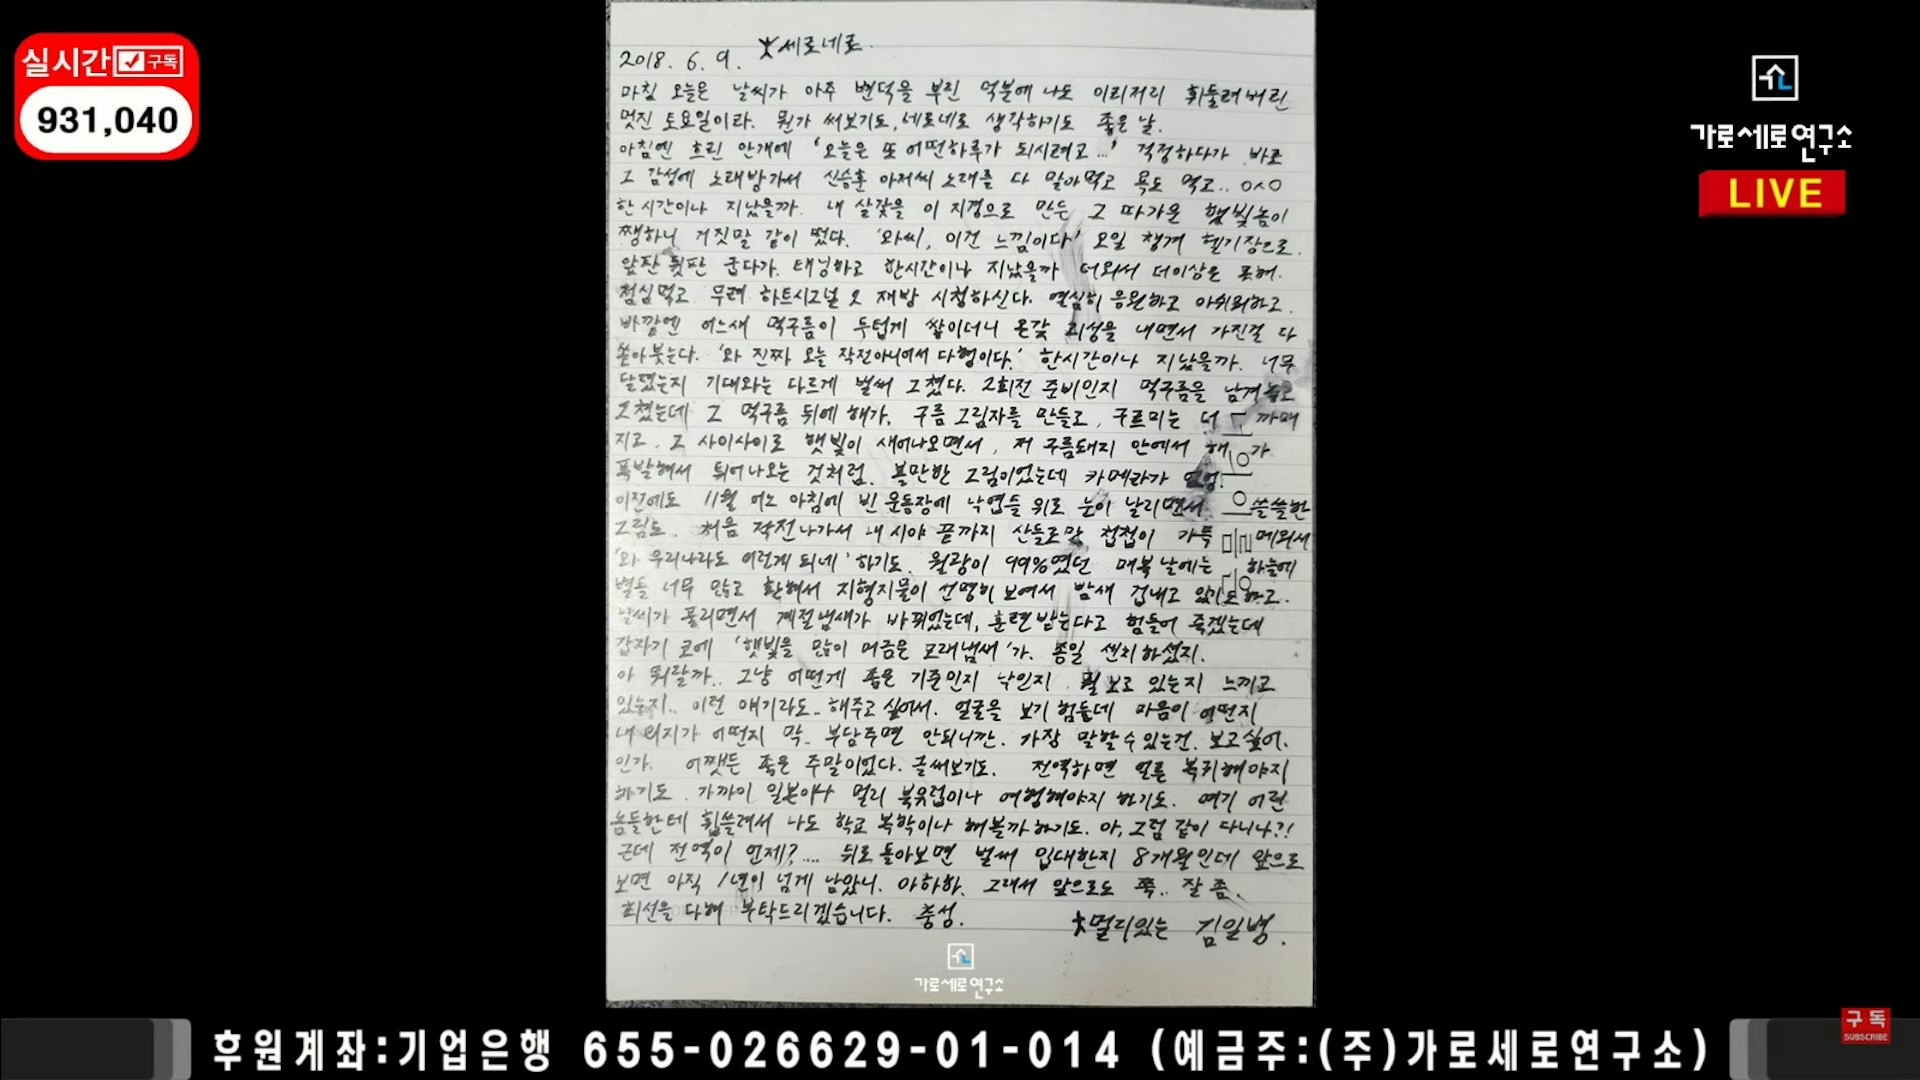 실시간 구독
931,040
가로세로연구소
LIVE
2018. 6. 9. 세로네로.
마침 오늘은 날씨가 아주 변덕을 부린 덕분에 나도 이리저리 휘둘려버린
멋진 토요일이라. 뭔가 써보기도, 네로네로 생각하기도 좋은 날.
아침엔 흐린 안개에 '오늘은 또 어떤하루가 되시려고...' 걱정하다가 바로
그 감성에 노래방가서 신승훈 아저씨 노래를 다 말아먹고 욕도 먹고..
한 시간이나 지났을까. 내 살갗을 이 지경으로 만든 그 따가운 햇빛놈이
쨍하니 거짓말 같이 떴다. '와씨, 이건 느낌이다!' 오일 챙겨 헬기장으로.
앞판 뒷판 굽다가. 태닝하고 한시간이나 지났을까 더워서 더이상은 못해.
점심먹고 무려 하트시그널 2 재방 시청하신다. 열심히 응원하고 아쉬워하고.
바깥엔 어느새 먹구름이 두텁게 쌓이더니 온갖 괴성을 내면서 가진걸 다
쏟아붓는다. '와 진짜 오늘 작전아니어서 다행이다.' 한시간이나 지났을까. 너무
달렸는지 기대와는 다르게 벌써 그쳤다. 2회전 준비인지 먹구름을 남겨놓고
그쳤는데 그 먹구름 뒤에 해가, 구름 그림자를 만들고, 구르미는 더 까매
지고, 그 사이사이로 햇빛이 새어나오면서, 저 구름돼지 안에서 해가
폭발해서 튀어나오는 것처럼. 볼만한 그림이었는데 카메라가
이전에도 11월 어느 아침에 빈 운동장에 낙엽들 위로 눈이 날리면서 쓸쓸한
그림도. 처음 작전나가서 내 시야 끝까지 산들로만 첩첩이 가득 메워서
'와 우리나라도 이런게 되네' 하기도. 월광이 99%였던 매복 날에는 하늘에
별들 너무 많고 환해서 지형지물이 선명히 보여서 밤새 겁내고 있기도하고.
날씨가 풀리면서 계절냄새가 바뀌었는데, 훈련받는다고 힘들어 죽겠는데
갑자기 코에 '햇빛을 많이 머금은 모래냄새'가. 종일 센치하셨지.
아 뭐랄까.. 그냥 어떤게 좋은 기준인지 낙인지 뭘 보고 있는지 느끼고
있는지.. 이런 얘기라도.. 해주고 싶어서. 얼굴을 보기 힘든데 마음이 어떤지
내 의지가 어떤지 막.. 부담주면 안되니깐. 가장 말할수 있는건. 보고싶어.
인가. 어쨋든 좋은 주말이었다. 글써보기도. 전역하면 얼른 복귀해야지
하기도. 가까이 일본이나 멀리 북유럽이나 여행해야지 하기도. 여기 어린
놈들한테 휩쓸려서 나도 학교 복학이나 해볼까하기도. 아, 그럼 같이 다니나?!
근데 전역이 언제?.... 뒤로 돌아보면 벌써 입대한지 8개월인데 앞으로
보면 아직 1년이 넘게 남았니. 아하하. 그래서 앞으로도 쭉.. 잘 좀.
최선을 다해 부탁드리겠습니다. 충성.
멀리있는 김일병.
가로세로연구소
후원계좌:기업은행 655-026629-01-014 (예금주:(주)가로세로연구소)
구독
SUBSCRIBE